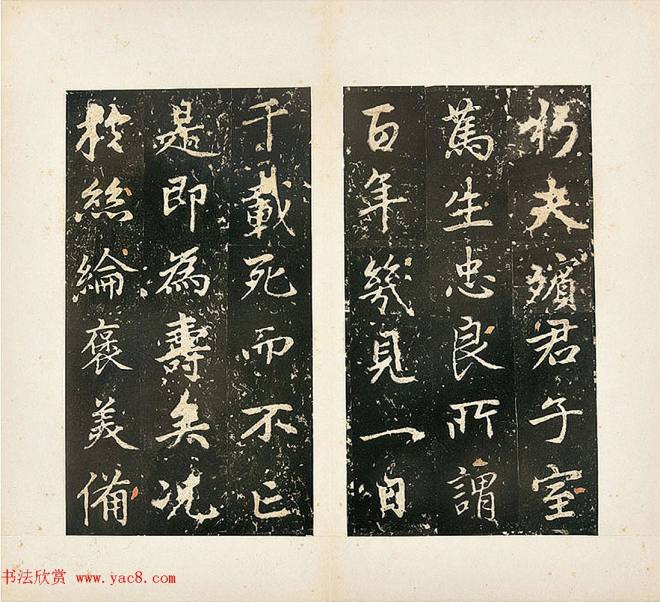 朽夫殯君子室
篤生忠良所謂
百年幾見一日
千載死而不亡
是即為壽矣况
於絲綸褒美備
书法欣赏 www.yac8.com